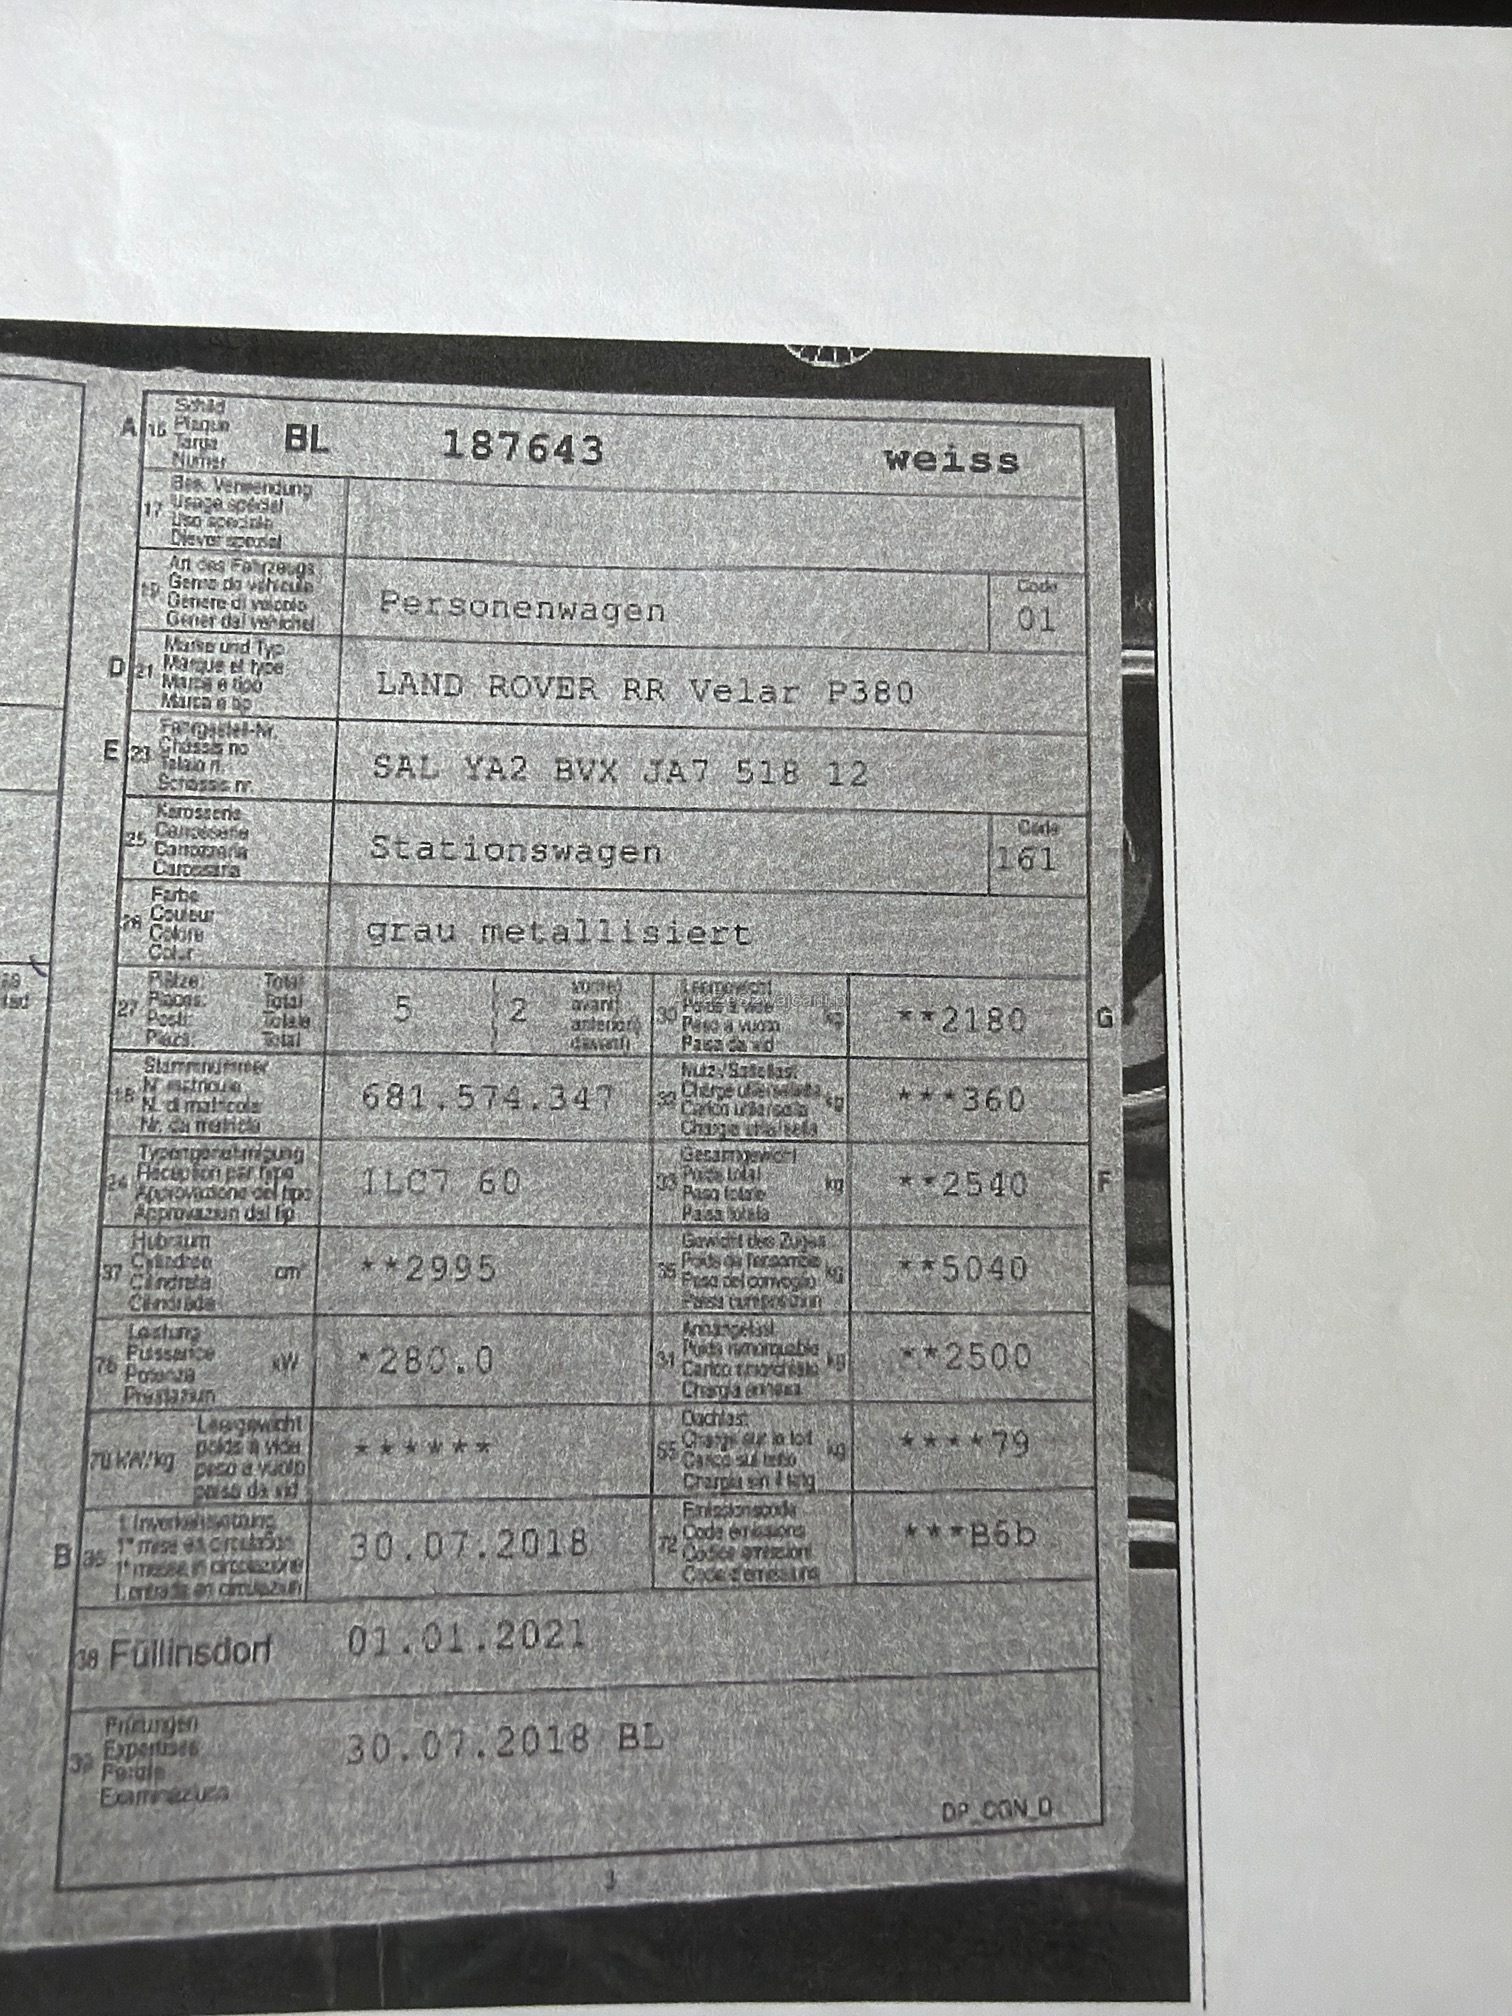 A 15 Schild BL 187643 weiss
Plaque
Targa
Numer
17 Bes. Verwendung
Usage spécial
Uso speciale
Diever spezial
19 Art des Fahrzeugs Personenwagen Code 01
Genre de véhicule
Genere di veicolo
Gener dal vehichel
D 21 Marke und Typ LAND ROVER RR Velar P380
Marque et type
Marca e tipo
Marca e tip
E 23 Fahrgestell-Nr. SAL YA2 BVX JA7 518 12
Châssis no
Telaio n.
Schassis nr.
25 Karosserie Stationswagen Code 161
Carrosserie
Carrozzeria
Carossaria
26 Farbe grau metallisiert
Couleur
Colore
Colur
27 Plätze: Total 5 2 vorne) 30 Leergewicht kg **2180 G
Places: Total avant) Poids à vide
Posti: Totale anteriori) Peso a vuoto
Plazs: Total davant) Paisa da vid
18 Stammnummer 681.574.347 32 Nutz-/Sattellast kg ***360
N° matricule Charge utile/sellette
N. di matricola Carico utile/sella
Nr. da matricla Chargia utila/sella
24 Typengenehmigung 1LC7 60 33 Gesamtgewicht kg **2540 F
Réception par type Poids total
Approvazione del tipo Peso totale
Approvaziun dal tip Paisa totala
37 Hubraum cm³ **2995 35 Gewicht des Zuges kg **5040
Cylindrée Poids de l'ensemble
Cilindrata Peso del convoglio
Cilindrada Paisa cumposiziun
76 Leistung kW *280.0 31 Anhängelast kg **2500
Puissance Poids remorquable
Potenza Carico rimorchiato
Prestaziun Chargia annexa
78 kW/kg Leergewicht ****** 55 Dachlast kg ****79
poids à vide Charge sur le toit
peso a vuoto Carico sul tetto
paisa da vid Chargia sin il tetg
B 36 1. Inverkehrsetzung 30.07.2018 72 Emissionscode ***B6b
1re mise en circulation Code émissions
1a messa in circolazione Codice emissioni
1. entrada en circulaziun Code d'emissiuns
38 Füllinsdorf 01.01.2021
39 Prüfungen 30.07.2018 BL
Expertises
Perizie
Examinaziuns
DP_CON_D
3